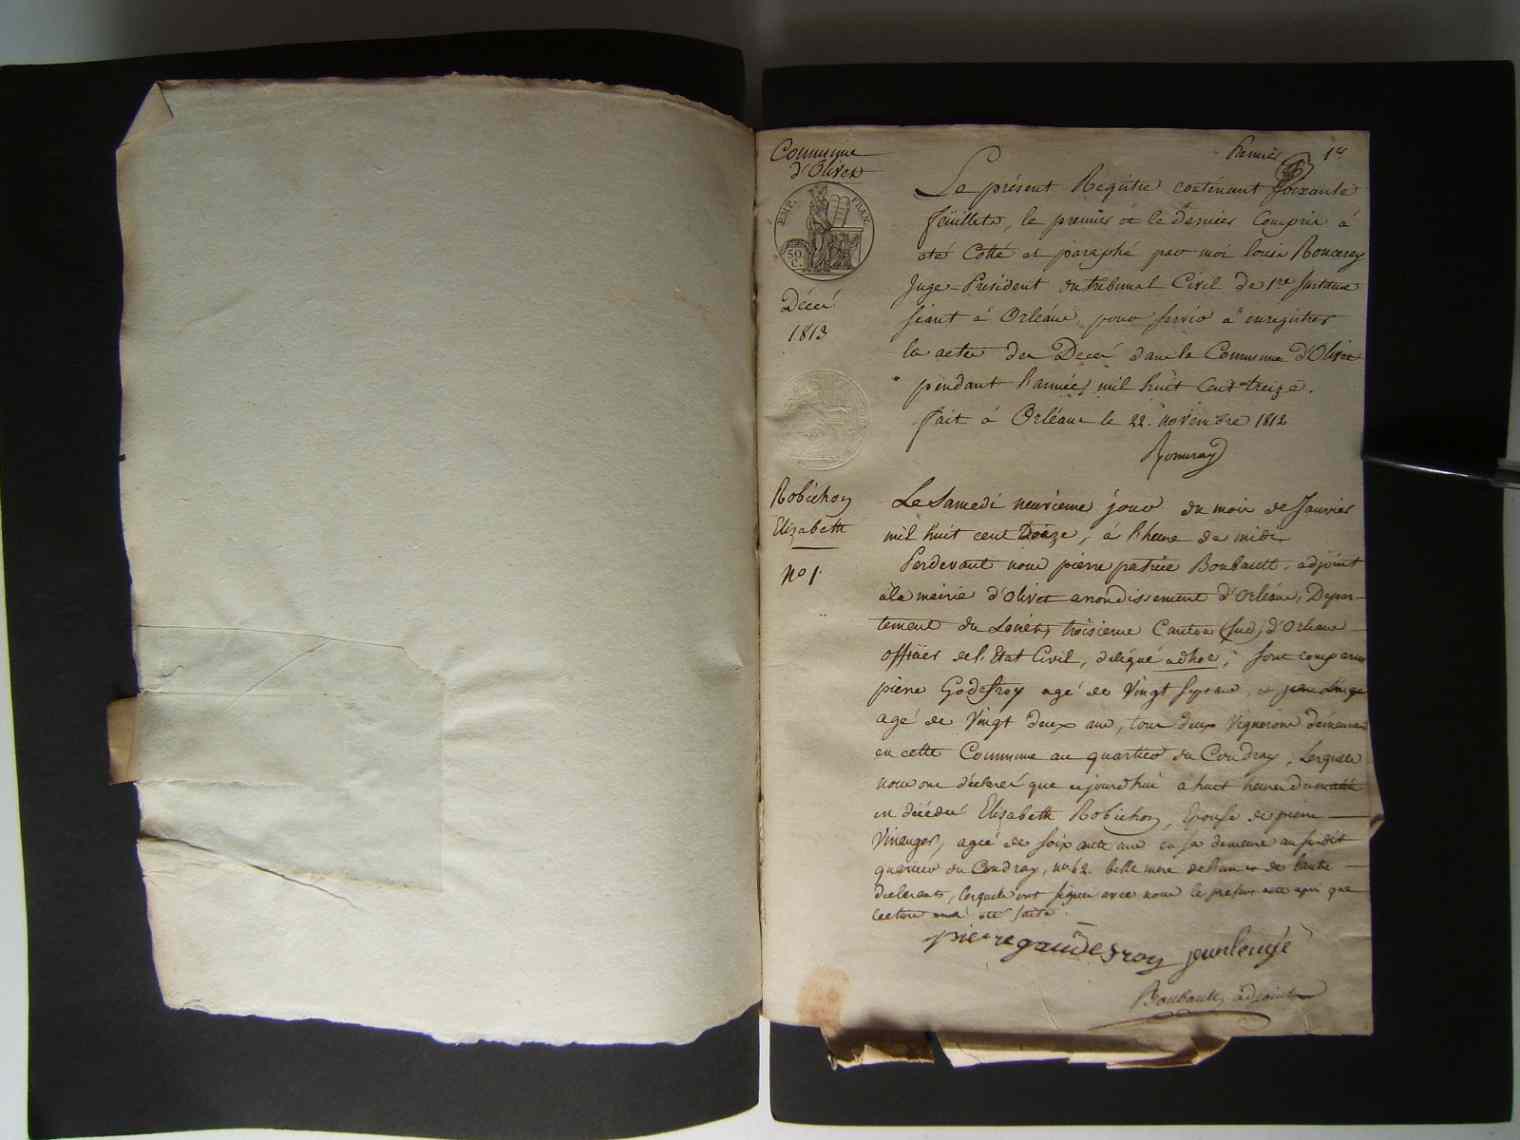 Commune
d'Olivet
EMP. FRAN.
50
C.
Décès
1813
1er
Le présent Registre contenant soixante
feuillets, le premier et le dernier compris a
été Cotté et paraphé par moi louis
Juge Président du tribunal Civil de 1re Instance
séant à Orléans, pour servir à enregistrer
les actes des Décès dans la Commune d'Olivet
pendant l'année mil huit Cent treize.
fait à Orléans le 22 novembre 1812
Robichon
Elizabeth
No 1.
Le Samedi neuvieme jour du mois de Janvier
mil huit cent treize, à l'heure de midi
Perdevant nous pierre patrice Boubault, adjoint
à la mairie d'Olivet arrondissement d'Orléans, Depar-
tement du Loiret, troisieme Canton (Sud) d'Orleans
officier de l'Etat Civil, délégué adhoc, sont comparus
pierre Godefroy agé de Vingt sept ans, et jean
agé de Vingt deux ans, tous deux Vignerons demeurans
en cette Commune au quartier du Coudray, Lesquels
nous ont déclaré que aujourd'hui à huit heures du matin
est décédée Elisabeth Robichon, Epouse de pierre
agée de soixante ans en sa demeure au susdit
quartier du Coudray, no 62. belle mere de l'un et de l'autre
declarants, lesquels ont signés avec nous le present acte après que
lecture en a été faite.
pierre gaudefroy
Boubault, adjoint